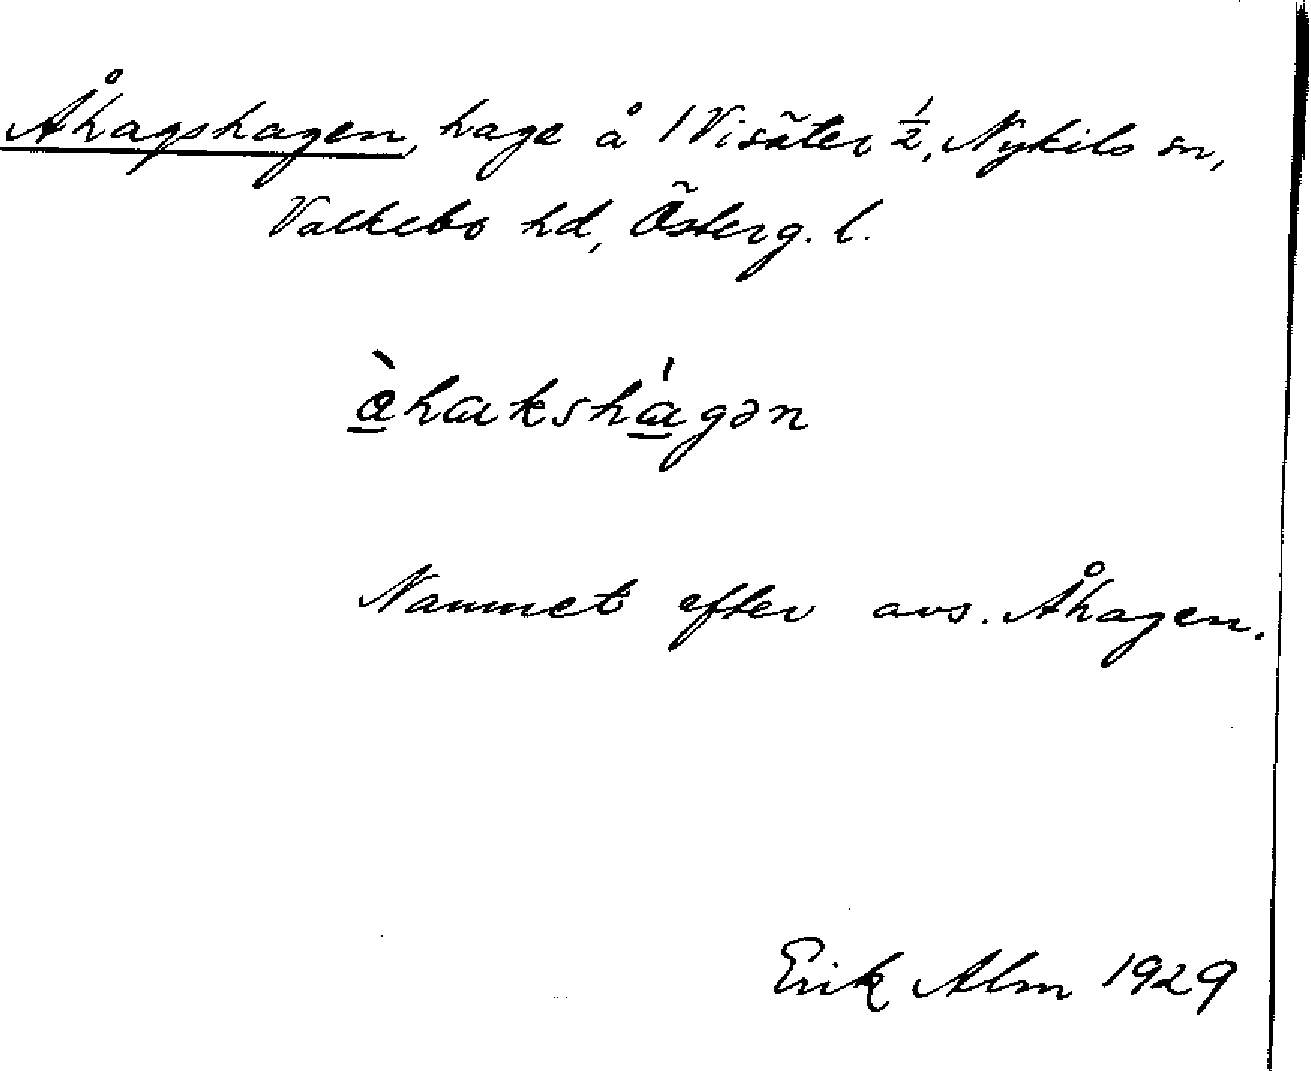 Åhagshagen, hage å 1 Visäter ½, Nykils sn,
Valkebo hd, Österg. l.
å̀hakshágən
Namnet efter avs. Åhagen.
Erik Alm 1929